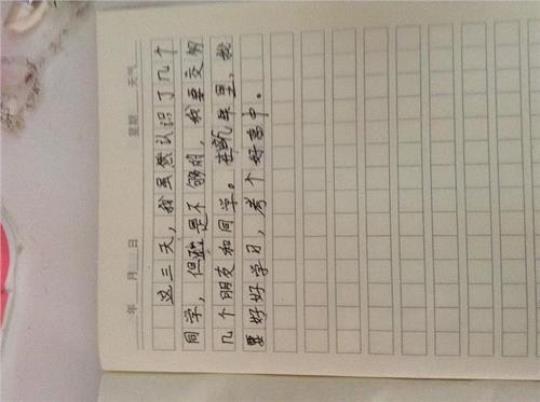 年 月 日 星期 天气
这三天，我虽然认识了几个
同学，但是不够用，我要交好
几个朋友和同学。在新班里，我
要好好学习，考个好高中。